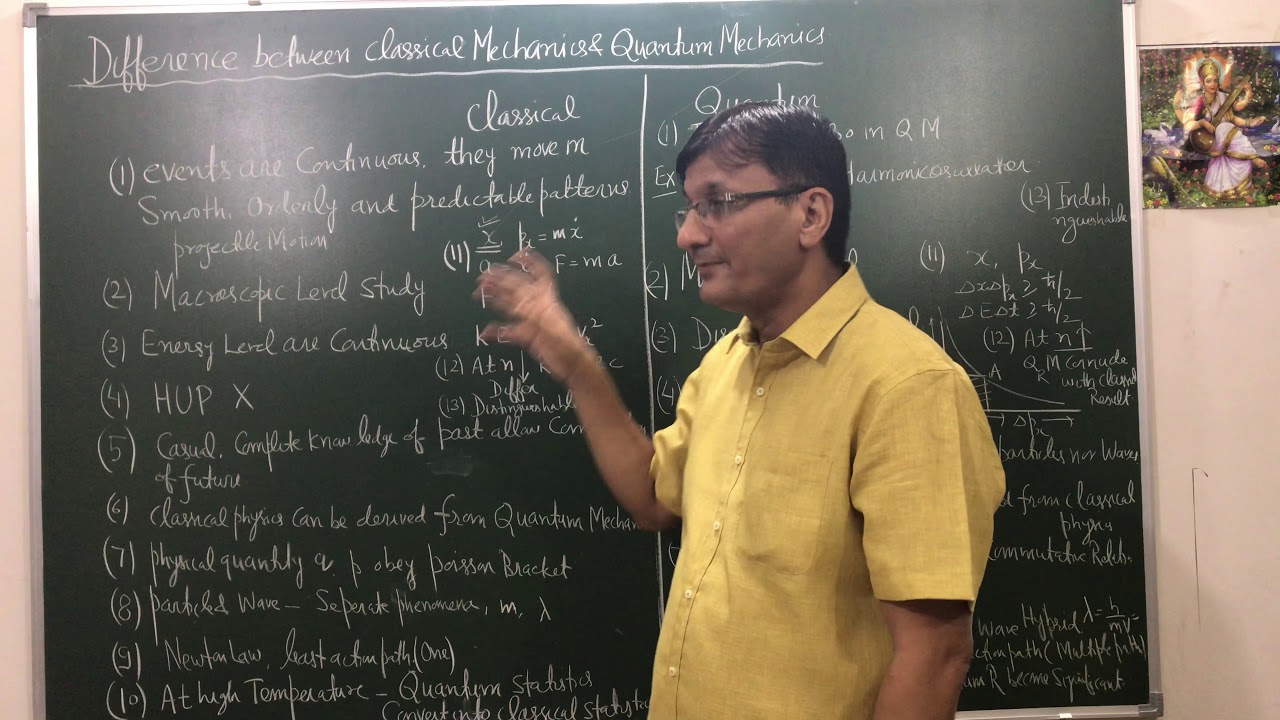 Difference between Classical Mechanics & Quantum Mechanics
Classical
(1) events are Continuous. they move m
Smooth, Orderly and predictable patterns
projectile Motion
(2) Macroscopic Level Study
(3) Energy Level are Continuous
(4) HUP X
(5) Casual. Complete Knowledge of past allow Com
of future
(6) Classical physics Can be derived from Quantum Mechan
(7) physical quantity q, p obey poisson Bracket
(8) particle & Wave – Seperate phenomena, m, λ
(9) Newton Law, least action path (One)
(10) At high Temperature – Quantum Statistics
Convert into classical Statist
(11) x, pₓ = mẋ
F = ma
K E
(12) At n
Differ
(13) Distinguishable
Quantum
(1)
so in Q M
Ex
(2) M
(3) Dis
(4)
(11) x, pₓ
ΔxΔpₓ ≥ ħ/2
ΔEΔt ≥ ħ/2
(12) At n↑
Q M
with Classi
Result
A
→ Δpₓ →
(13) Indisti
nguishable
particles nor Waves
from Classical
physics
Commutative Relatio
Wave Hybrid λ = h/mv =
ction path (Multiple path)
become Significant